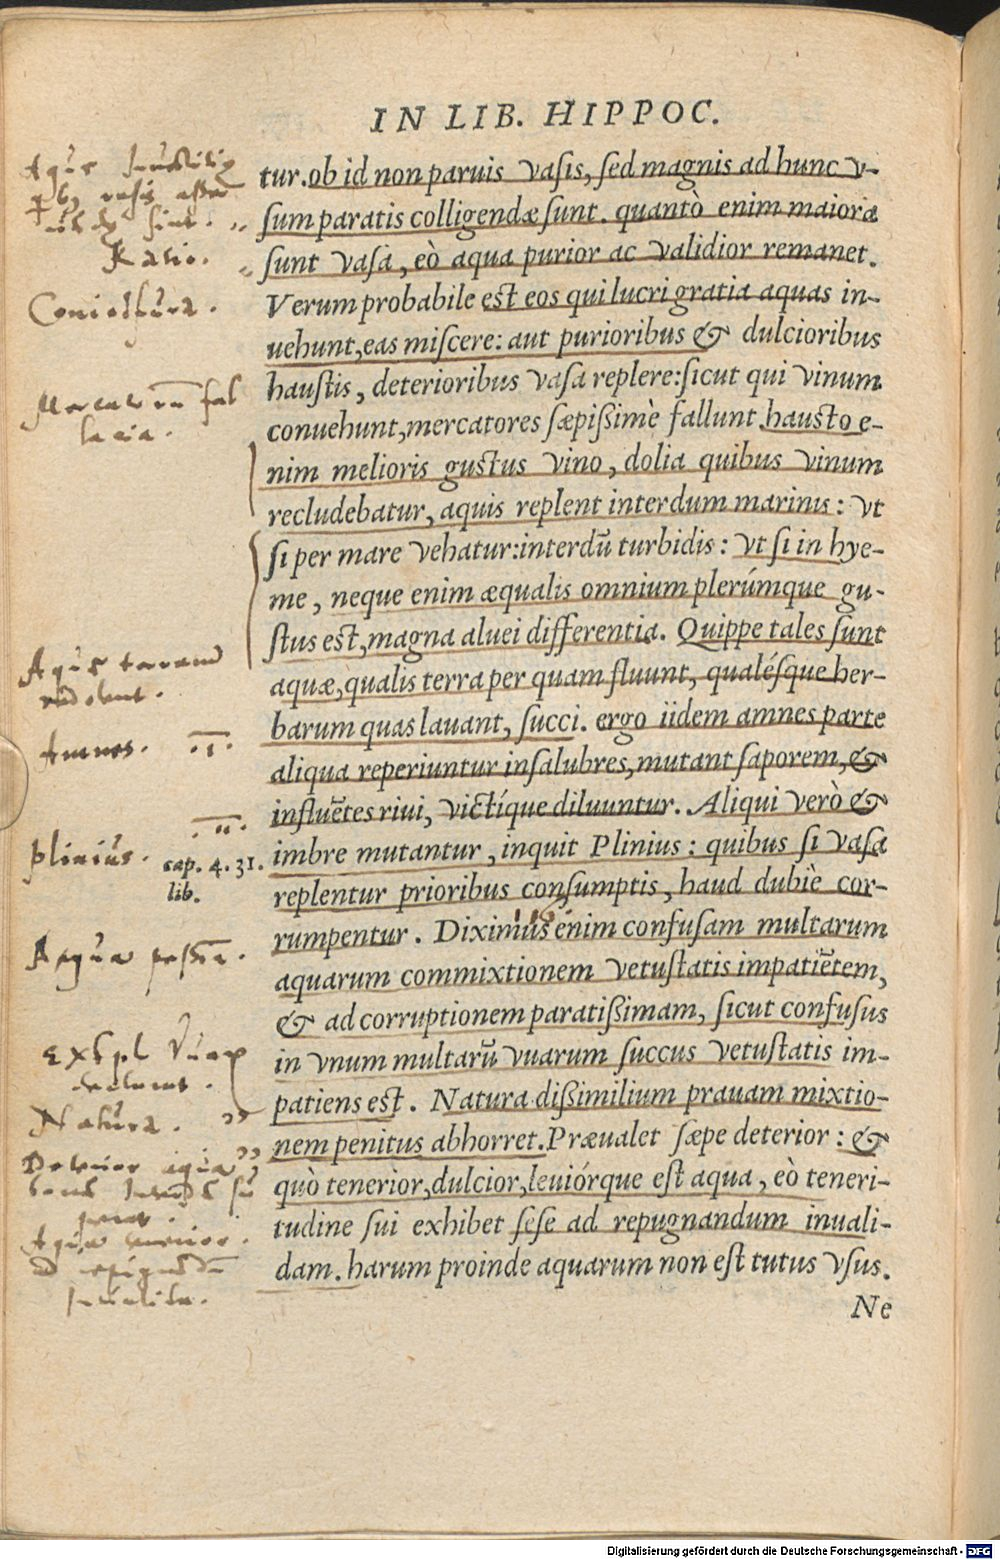 IN LIB. HIPPOC.
tur.ob id non paruis vasis, sed magnis ad hunc v-
sum paratis colligendæ sunt. quantò enim maiora
sunt vasa, eò aqua purior ac validior remanet.
Verum probabile est eos qui lucri gratia aquas in-
uehunt,eas miscere: aut purioribus & dulcioribus
haustis, deterioribus vasa replere:sicut qui vinum
conuehunt,mercatores sæpißimè fallunt.hausto e-
nim melioris gustus vino, dolia quibus vinum
recludebatur, aquis replent interdum marinis: vt
si per mare vehatur:interdū turbidis: vt si in hye-
me, neque enim æqualis omnium plerúmque gu-
stus est,magna aluei differentia. Quippe tales sunt
aquæ,qualis terra per quam fluunt, qualésque her-
barum quas lauant, succi. ergo iidem amnes parte
aliqua reperiuntur insalubres,mutant saporem,&
influētes riui, victíque diluuntur. Aliqui verò &
imbre mutantur, inquit Plinius: quibus si vasa
replentur prioribus consumptis, haud dubiè cor-
rumpentur. Diximus enim confusam multarum
aquarum commixtionem vetustatis impatiētem,
& ad corruptionem paratißimam, sicut confusus
in vnum multarū vuarum succus vetustatis im-
patiens est. Natura dißimilium prauam mixtio-
nem penitus abhorret.Præualet sæpe deterior: &
quò tenerior,dulcior,leuiórque est aqua, eò teneri-
tudine sui exhibet sese ad repugnandum inuali-
dam. harum proinde aquarum non est tutus vsus.
Ne
cap. 4. 31.
lib.
Ratio.
Coniectura.
Amnes. .I.
.II.
Plinius.
Natura. ,,
Digitalisierung gefördert durch die Deutsche Forschungsgemeinschaft - DFG